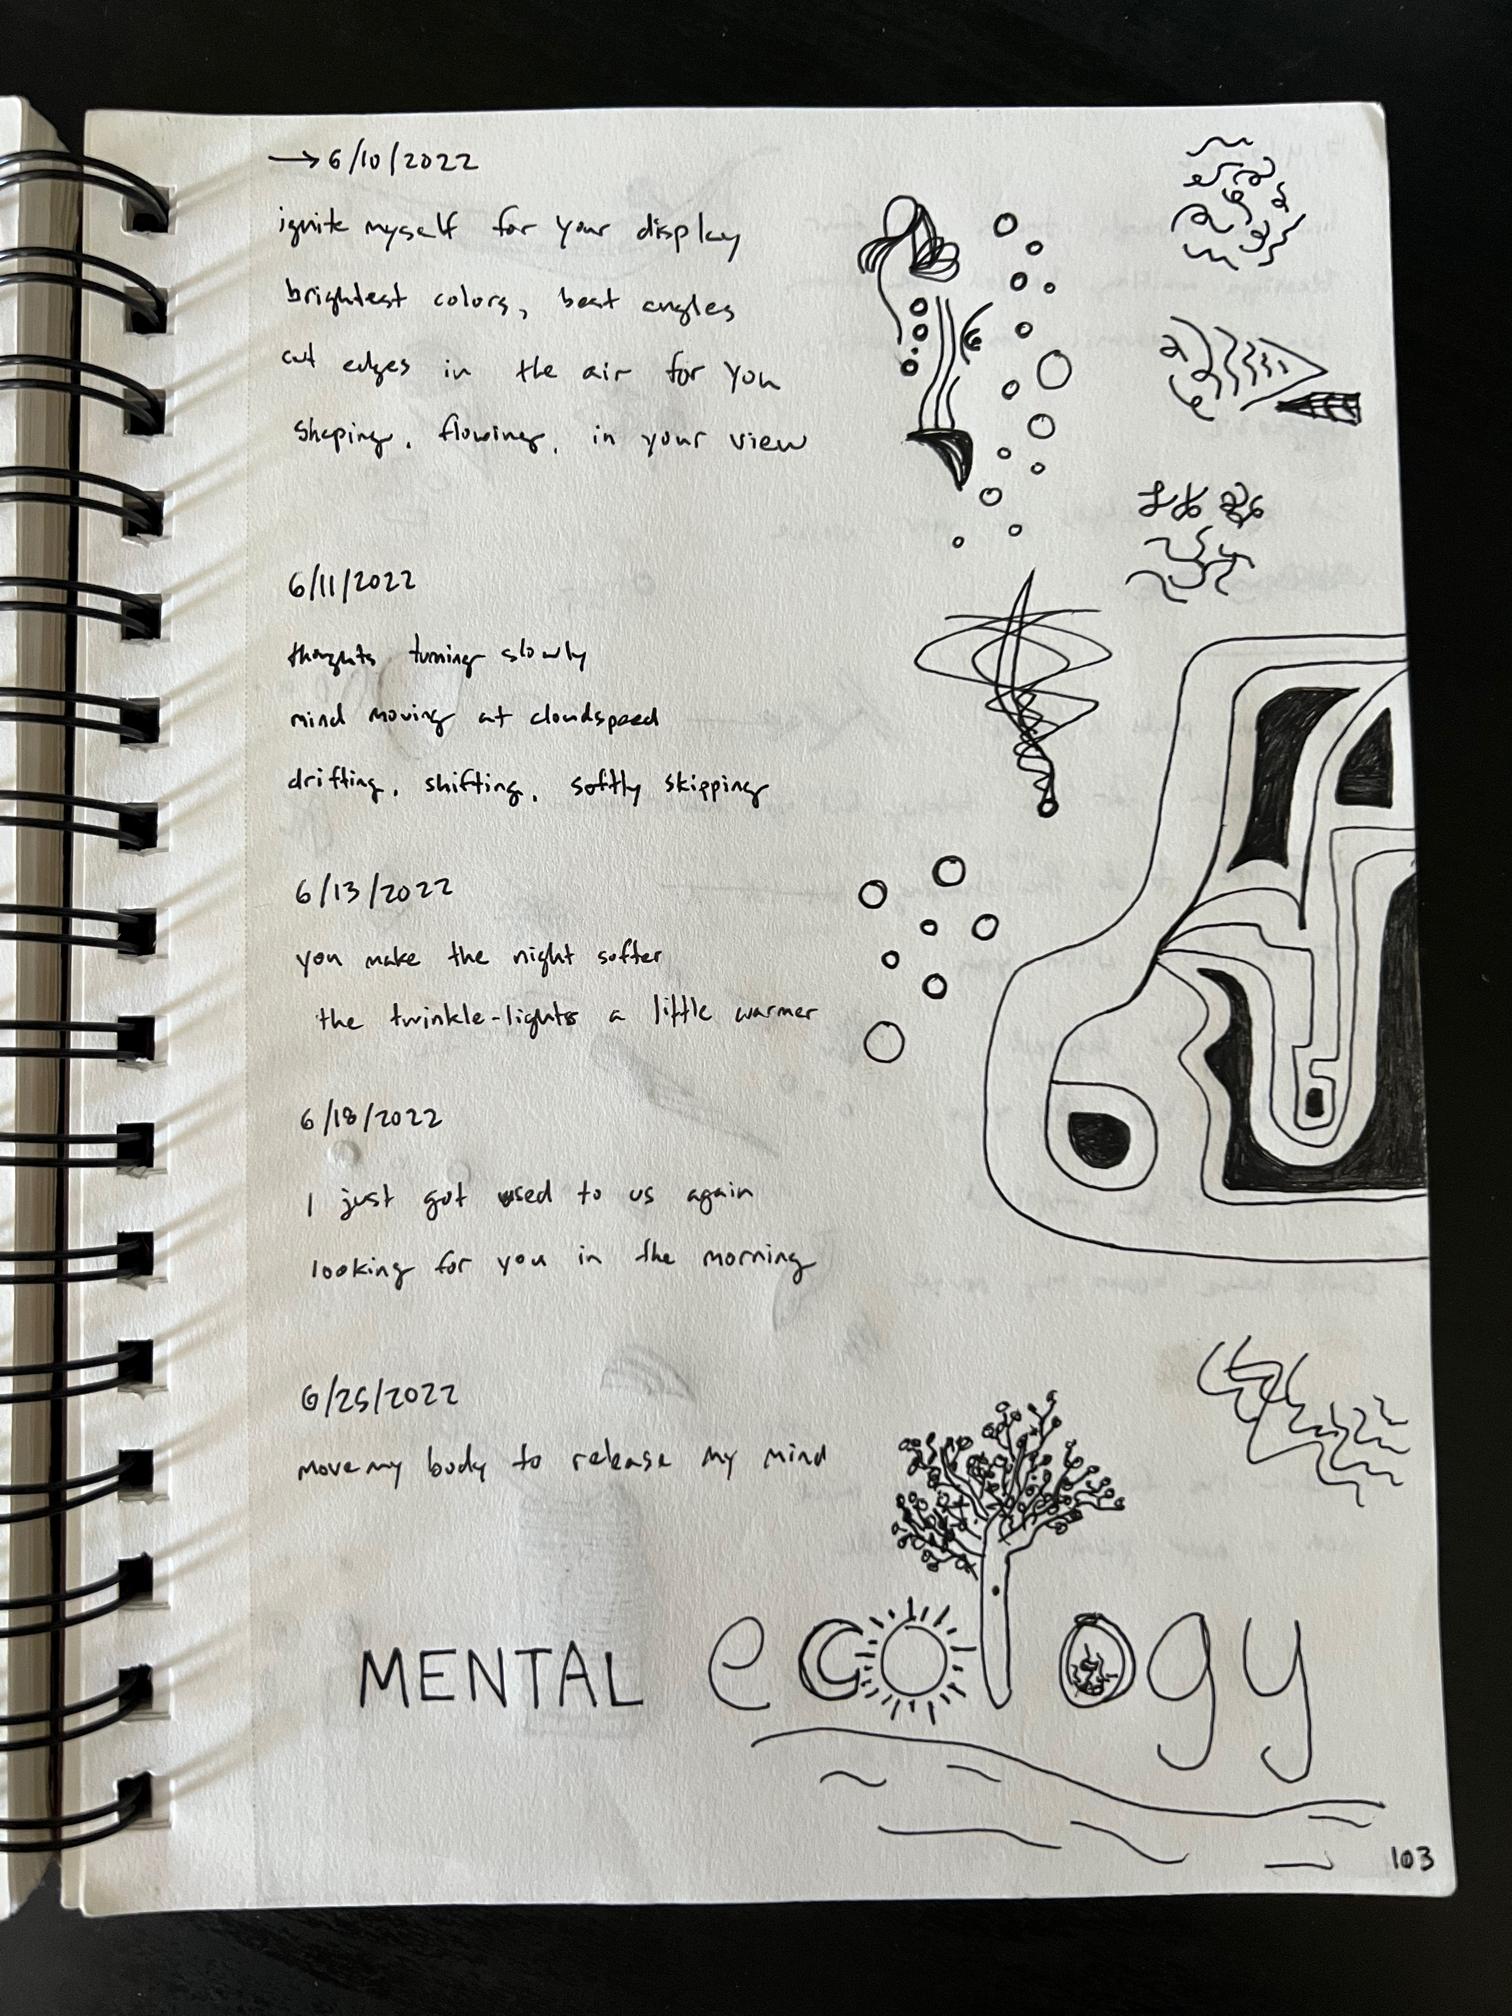 → 6/10/2022
ignite myself for your display
brightest colors, best angles
cut edges in the air for you
shaping, flowing, in your view
6/11/2022
thoughts turning slowly
mind moving at cloudspeed
drifting, shifting, softly skipping
6/13/2022
you make the night softer
the twinkle-lights a little warmer
6/18/2022
I just got used to us again
looking for you in the morning
6/25/2022
move my body to release my mind
MENTAL ecology
103